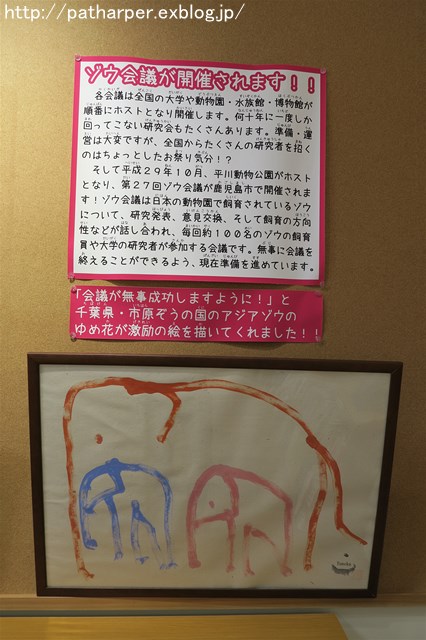 http://patharper.exblog.jp/
ゾウ会議が開催されます！！
各会議は全国の大学や動物園・水族館・博物館が
順番にホストとなり開催します。何十年に一度しか
回ってこない研究会もたくさんあります。準備・運
営は大変ですが、全国からたくさんの研究者を招く
のはちょっとしたお祭り気分！？
そして平成２９年１０月、平川動物公園がホスト
となり、第２７回ゾウ会議が鹿児島市で開催されま
す！ゾウ会議は日本の動物園で飼育されているゾウ
について、研究発表、意見交換、そして飼育の方向
性などが話し合われ、毎回約１００名のゾウの飼育
員や大学の研究者が参加する会議です。無事に会議を
終えることができるよう、現在準備を進めています。
「会議が無事成功しますように！」と
千葉県・市原ぞうの国のアジアゾウの
ゆめ花が激励の絵を描いてくれました！！